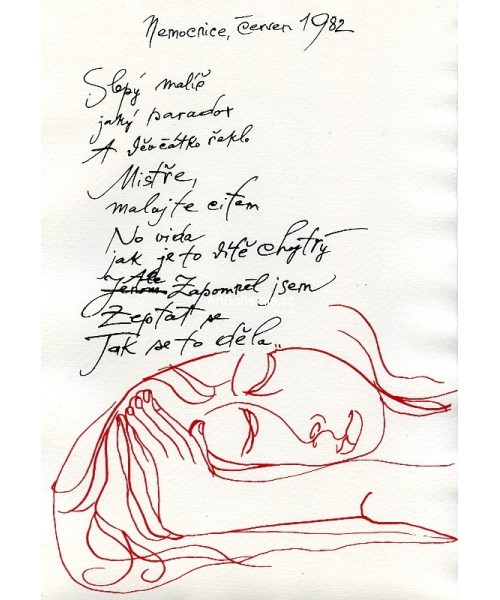 Nemocnice, červen 1982
Slepý malíř
jaký paradox
A děvčátko řeklo
Mistře,
malujte citem
No vida
jak je to dítě chytrý
Ale
Jenom Zapomněl jsem
Zeptat se
Jak se to dělá..